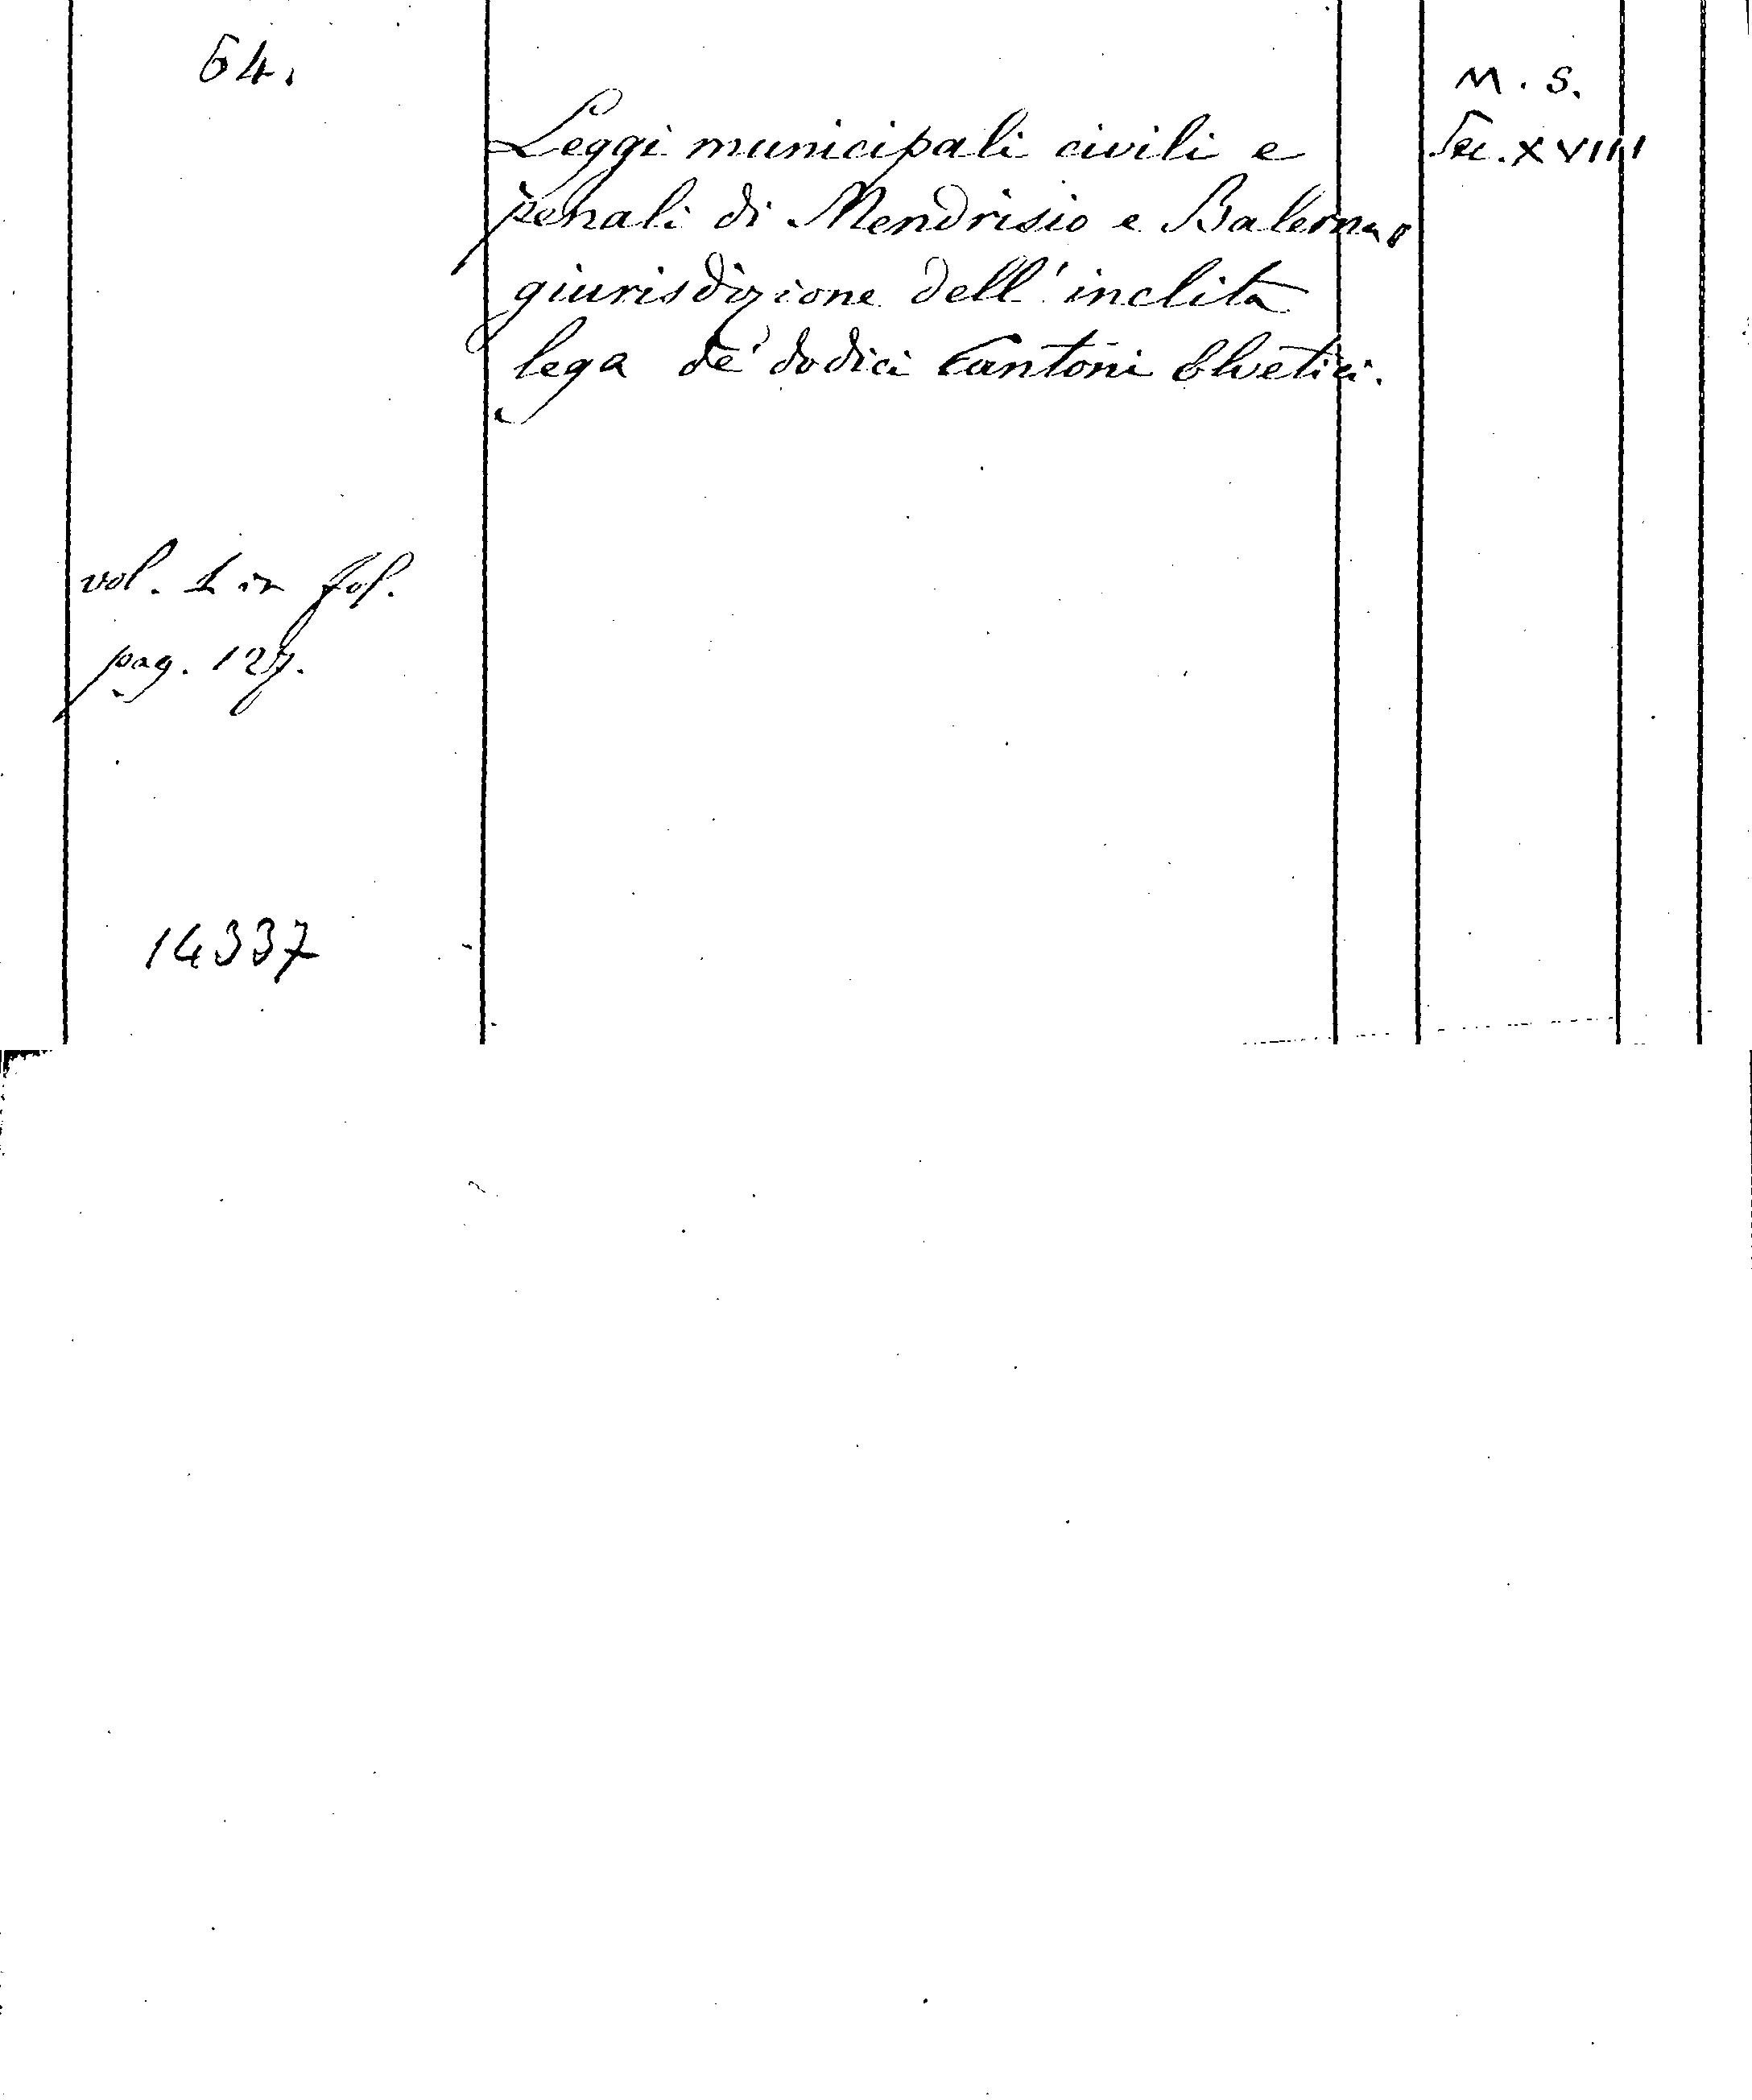 64.
M. S.
Sec. XVIII
Leggi municipali civili e
penali di Mendrisio e Balerna,
giurisdizione dell' inclita
lega de' dodici Cantoni Elvetici.
vol. 1 in fol.
pag. 127.
14337